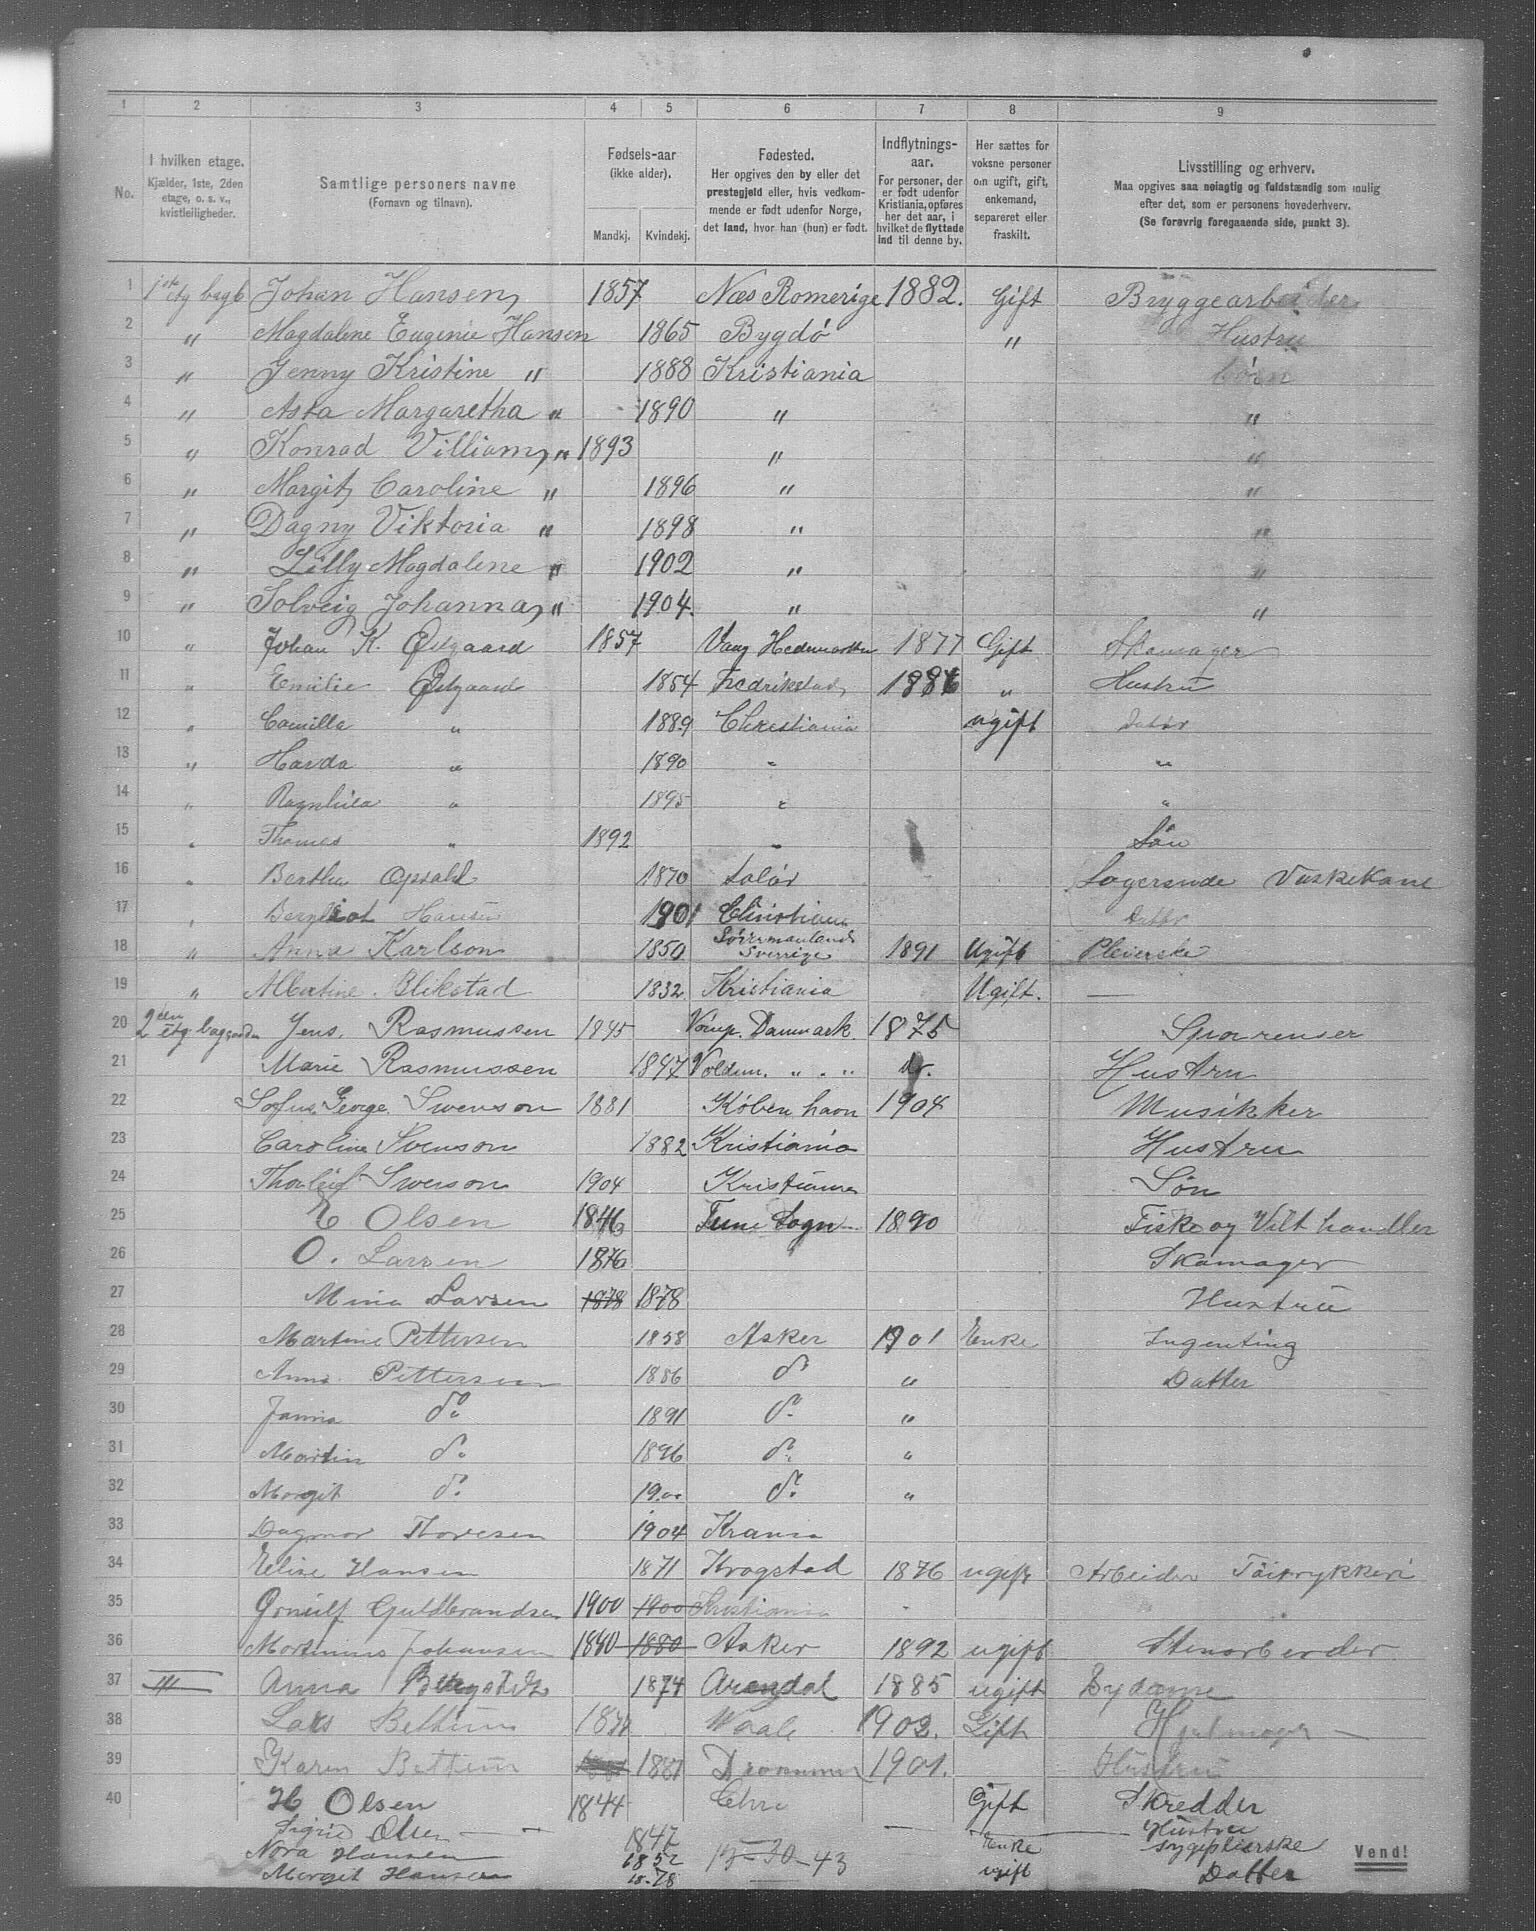 1 2 3 4 5 6 7 8 9
No.
I hvilken etage.
Kjælder, 1ste, 2den
etage, o. s. v.,
kvistleiligheder.
Samtlige personers navne
(Fornavn og tilnavn).
Fødsels-aar
(ikke alder).
Mandkj. Kvindekj.
Fødested.
Her opgives den by eller det
prestegjeld eller, hvis vedkom-
mende er født udenfor Norge,
det land, hvor han (hun) er født.
Indflytnings-
aar.
For personer, der
er født udenfor
Kristiania, opføres
her det aar, i
hvilket de flyttede
ind til denne by.
Her sættes for
voksne personer
om ugift, gift,
enkemand,
separeret eller
fraskilt.
Livsstilling og erhverv.
Maa opgives saa nøiagtig og fuldstændig som mulig
efter det, som er personens hovederhverv.
(Se forøvrig foregaaende side, punkt 3).
1 1ste etg bagb Johan Hansen, 1857 Næs Romerige 1882. Gift Bryggearbeider
2 " Magdalene Eugenie Hansen 1865 Bygdö " Hustru
3 " Jenny Kristine " 1888 Kristiania Börn
4 " Asta Margaretha " 1890 " "
5 " Konrad Villiam, " 1893 " "
6 " Margit Caroline " 1896 " "
7 " Dagny Viktoria " 1898 " "
8 " Lilly Magdalene " 1902 " "
9 " Solveig Johanna, " 1904. " "
10 " Johan K. Østgaard 1857 Vang Hedemarken 1877 Gift Skomager
11 " Emilie Østgaard 1854 Fredrikstad 1886 " Hustru
12 " Camilla " 1889 Christiania ugift Datter
13 " Harda " 1890 " "
14 " Ragnhild " 1895 " "
15 " Thomas " 1892 " Sön
16 " Bertha Opsahl 1870 Solör Logerende Vaskekone
17 " Bergliot Hansen 1901 Christiania Datter
18 " Anna Karlson 1850 Sörrmanland Sverrige 1891 Ugift Pleierske
19 " Albertine Blikstad 1832 Kristiania Ugift. —
20 2den etg baggaarden Jens. Rasmussen 1845 Vorup. Danmark. 1875 Sporrenser
21 Marie Rasmussen 1847 Voldum. " . " do. Hustru
22 Sofus George Swenson 1881 Köbenhavn 1904 Musikker
23 Caroline Svenson 1882 Kristiania Hustru
24 Thorleif Swenson 1904 Kristiania Sön
25 E Olsen 1846 Tune Sogn 1890 Fiske og Vilt handler
26 O. Larsen 1876 Skomager
27 Mina Larsen 1878 1878 Hustru
28 Martine Pettersen 1858 Asker 1901 Enke Ingenting
29 Anna Pettersen 1886 do " Datter
30 Janna do. 1891 do. "
31 Martin do. 1896 do. "
32 Margit do. 1900 do. "
33 Dagmar Thoresen 1904 Krania
34 Elise Hansen 1871 Krogstad 1876 ugift Arbeider Töitrykkeri
35 Ørnulf Guldbrandsen 1900 1900 Kristiania
36 Mortinius Johansen 1880 1880 Asker 1892 ugift Stenarbeider
37 Anna 1874 Arendal 1885 ugift Sydame
38 Lars Bettum Vaale 1902. Gift
39 Karen Bettum 1881 Drammen 1901. Hustru
40 H Olsen 1844 Chra Gift Skredder
Sigrid Olsen — 1847 — Hustru
Nora Hansen 1852 13—30—43 Enke sygepleierske
Margit Hansen 1878 ugift Datter
Vend!